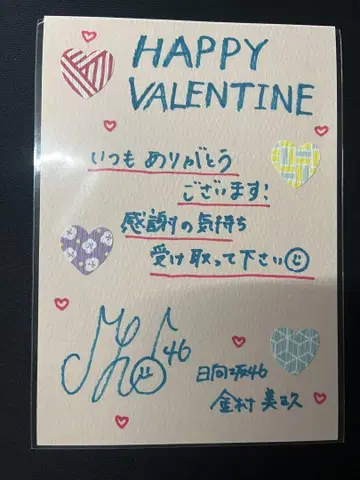 HAPPY
VALENTINE
いつもありがとう
ございます!
感謝の気持ち
受け取って下さい
46
日向坂46
金村美玖